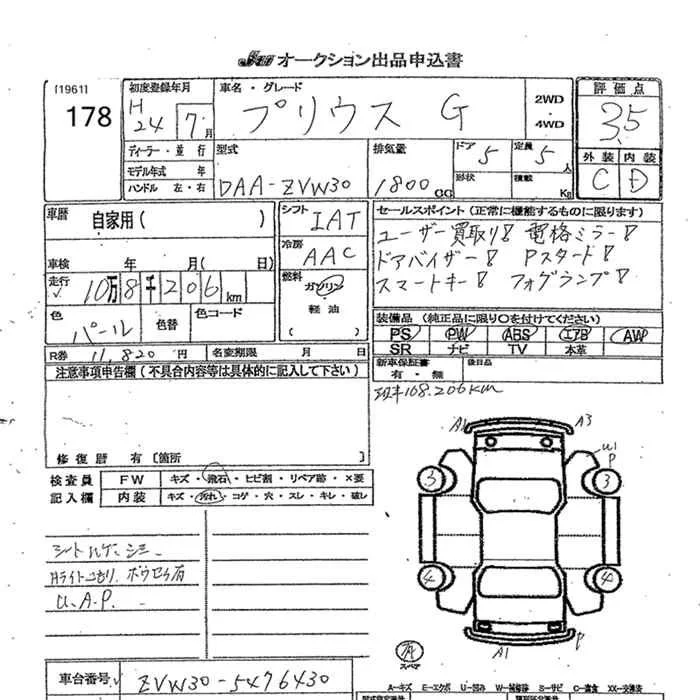 JU オークション出品申込書
[1961]
178
初度登録年月
H 24 7月
車名・グレード
プリウス G
2WD
・
4WD
評価点
3.5
外装 内装
C D
ディーラー・並行
モデル年式 年
ハンドル 左・右
型式
DAA-ZVW30
排気量
1800 CC
ドア 5
定員 5 人
形状
積載 Kg
車歴 自家用( )
シフト IAT
車検 年 月( 日)
冷房 AAC
走行 10万8千206km
燃料 ガソリン
・
軽油
( )
色 パール
色替
色コード
R券 11,820円
名変期限 月 日
セールスポイント(正常に機能するものに限ります)
ユーザー買取り! 電格ミラー!
ドアバイザー! Pスタート!
スマートキー! フォグランプ!
装備品(純正品に限り○を付けてください)
PS PW ABS エアB AW
SR ナビ TV 本革
新車保証書
有・無
後日品
注意事項申告欄(不具合内容等は具体的に記入して下さい)
修復歴 有〔箇所 〕
108.206km
検査員
記入欄
FW キズ・飛石・ヒビ割・リペア跡・×要
内装 キズ・汚れ・コゲ・穴・スレ・キレ・破レ
シートハゲ・シミ
U.A.P.
A1 A3
U1
P
3 3
4 4
A1 P
スペア
車台番号 ZVW30-5476430
A…キズ E…エクボ U…凹み W…補修跡 S…サビ C…腐食 XX…交換済